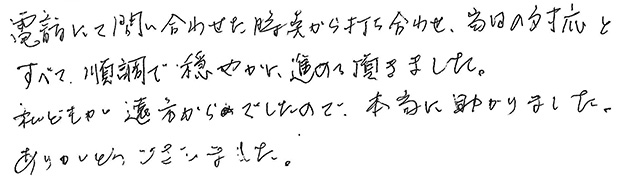 電話にて問い合わせた時点から打ち合わせ、当日の対応と
すべて、順調で穏やかに進めて頂きました。
私どもが遠方からでしたので、本当に助かりました。
ありがとうございました。